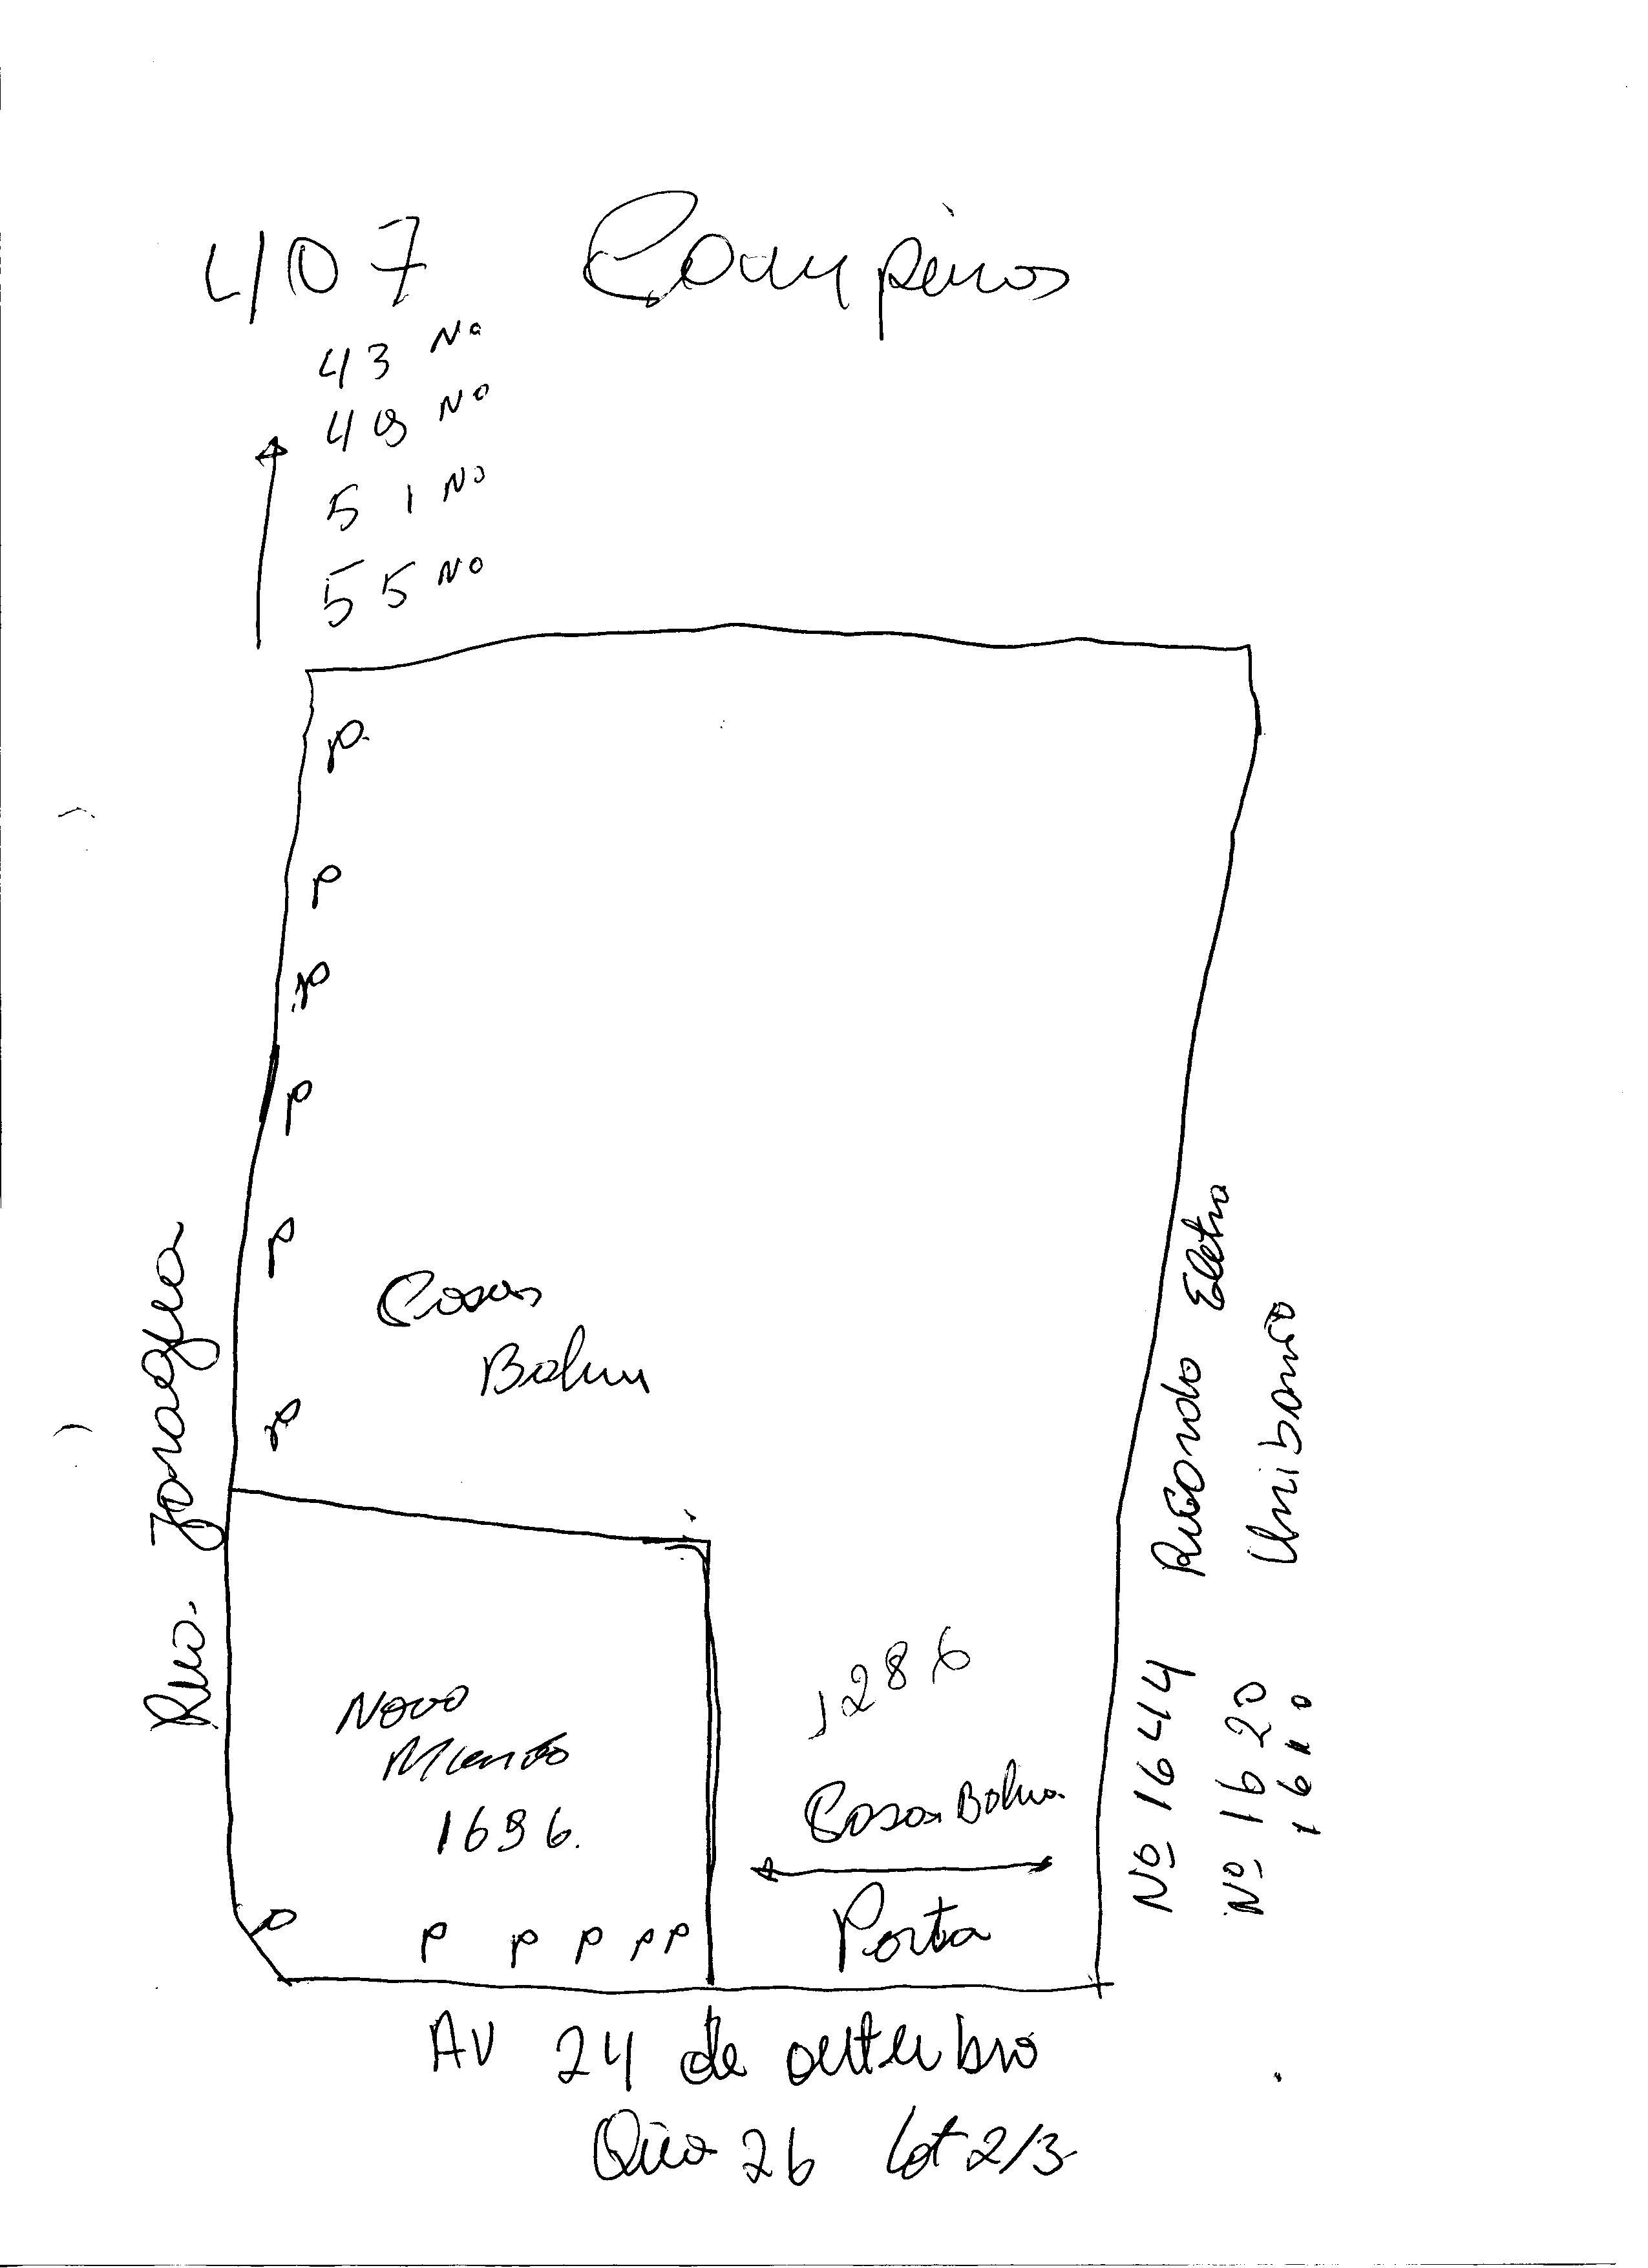 407 Campinas
43 No
49 No
51 No
55 No
P
P
P
P
P
P
Casas
Bahia
Rua Jaraguá
Novo
Mundo
1696.
P P P P P P
1286
Casas Bahia
Porta
Nº 1644 Ricardo Eletro
Nº 1620 Unibanco
1610
AV 24 de outubro
Qda 26 Lot 2/3